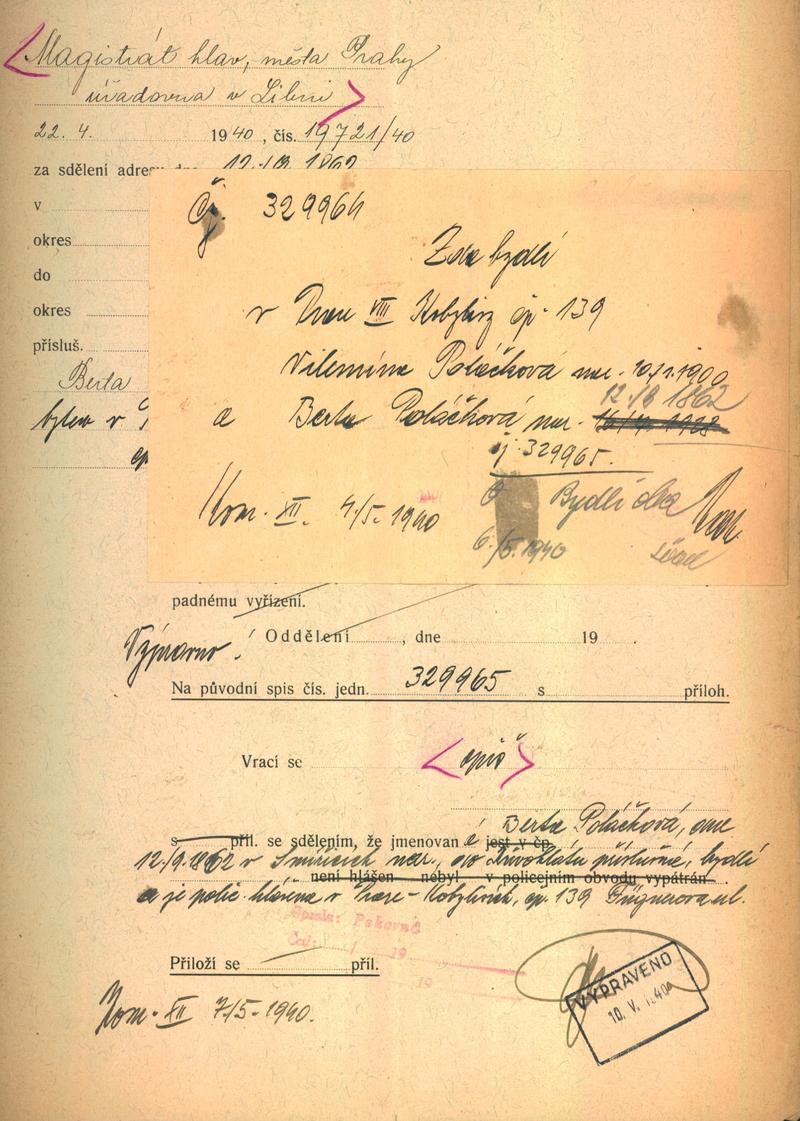 Magistrát hlav, města Prahy
úřadovna v Libni
22. 4. 1940, čís. 19721/40
za sdělení adresy dne 12./9. 1862
v
okres
do
okres
přísluš.
Berta
bytem v
čp
Čj. 329964
Zda bydlí
v Praze VIII Kobylisy čp. 139
Vilemína Poláčková nar. 10./1. 1900
12./9. 1862
a Berta Poláčková nar.
čj. 329965.
Kom. XII. 4/5. 1940
Bydlí oba
6./5. 1940
padnému vyřízení.
Vypraveno!
Oddělení , dne 19 .
Na původní spis čís. jedn. 329965 s příloh.
Vrací se < opis >
Berta Poláčková, dne
s příl. se sdělením, že jmenovan á jest v čp.
12./9. 1862 v Smiřicích nar., do Křivoklátu příslušná, bydlí
není hlášen – nebyl – v policejním obvodu vypátrán
a je polic. hlášena v Praze-Kobylisích, čp. 139 Fügnerova ul.
Opsala: Pokorná
Čal:
19
19
Přiloží se příl.
Kom. XII 7/5. 1940.
VYPRAVENO
10. V. 1940